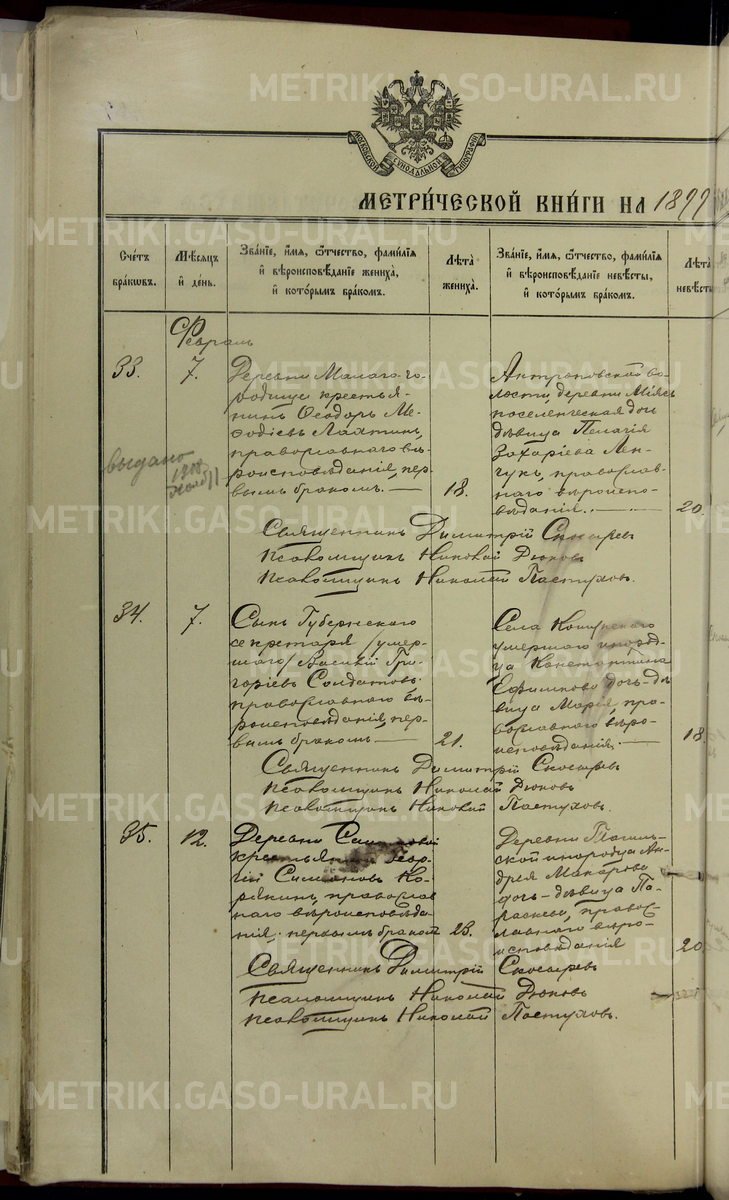 METRIKI.GASO-URAL.RU
МОСКОВСКОЙ СѴНОДАЛЬНОЙ ТИПОГРАФІИ
МЕТРИ́ЧЕСКОЙ КНИ́ГИ НА 1899
Сче́тъ бра́кωвъ.
Мѣ́сяцъ и҆ де́нь.
Зва́нїе, и҆́мя, ѻ҆́тчество, фами́лїя
и҆ вѣроисповѣ́данїе жениха̀,
и҆ кото́рымъ бра́комъ.
Лѣ́та жениха̀.
Зва́нїе, и҆́мя, ѻ҆́тчество, фами́лїя
и҆ вѣроисповѣ́данїе невѣ́сты,
и҆ кото́рымъ бра́комъ.
Лѣ́та невѣ́сты
Февраль
33.
7.
Деревни Малаго го-
родища крестья-
нинъ Ѳеодоръ Ме-
ѳодіевъ Лахтинъ,
православнаго вѣ-
роисповѣданія, пер-
вымъ бракомъ.
18.
Антроповской во-
лости, деревни Міясъ
поселенческая дочь
дѣвица Пелагія
Захаріева Лен-
чукъ, православ-
наго вѣроиспо-
вѣданія.
20.
выдано
1908
Священникъ Димитрій Скосыревъ
Псаломщикъ Николай Дюковъ
Псаломщикъ Николай Пастуховъ.
34.
7.
Сынъ Губернскаго
секретаря /умер-
шаго/ Василій Гри-
горіевъ Солдатовъ
православнаго вѣ-
роисповѣданія, пер-
вымъ бракомъ
21.
Села Кошукскаго
умершаго инород-
ца Константина
Ефимова дочь-дѣ-
вица Марія, пра-
вославнаго вѣро-
исповѣданія.
18.
Священникъ Димитрій Скосыревъ
Псаломщикъ Николай Дюковъ
Псаломщикъ Николай Пастуховъ.
35.
12.
Деревни
крестьянинъ Геор-
гій Симановъ Ко-
рякинъ, православ
наго вѣроисповѣда-
нія, первымъ бракомъ
23.
Деревни Тагиль-
ской инородца Ан-
дрея Макарова
дочь-дѣвица Па-
раскева, правос-
лавнаго вѣро-
исповѣданія
20
Священникъ Димитрій Скосыревъ
Псаломщикъ Николай Дюковъ
Псаломщикъ Николай Пастуховъ.